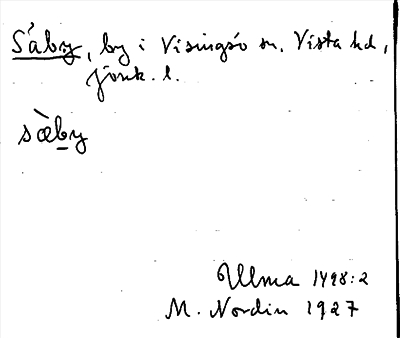 Såby, by i Visingsö sn, Vista hd,
Jönk. l.
sæ̀by
Ulma 1498:2
M. Nordin 1927